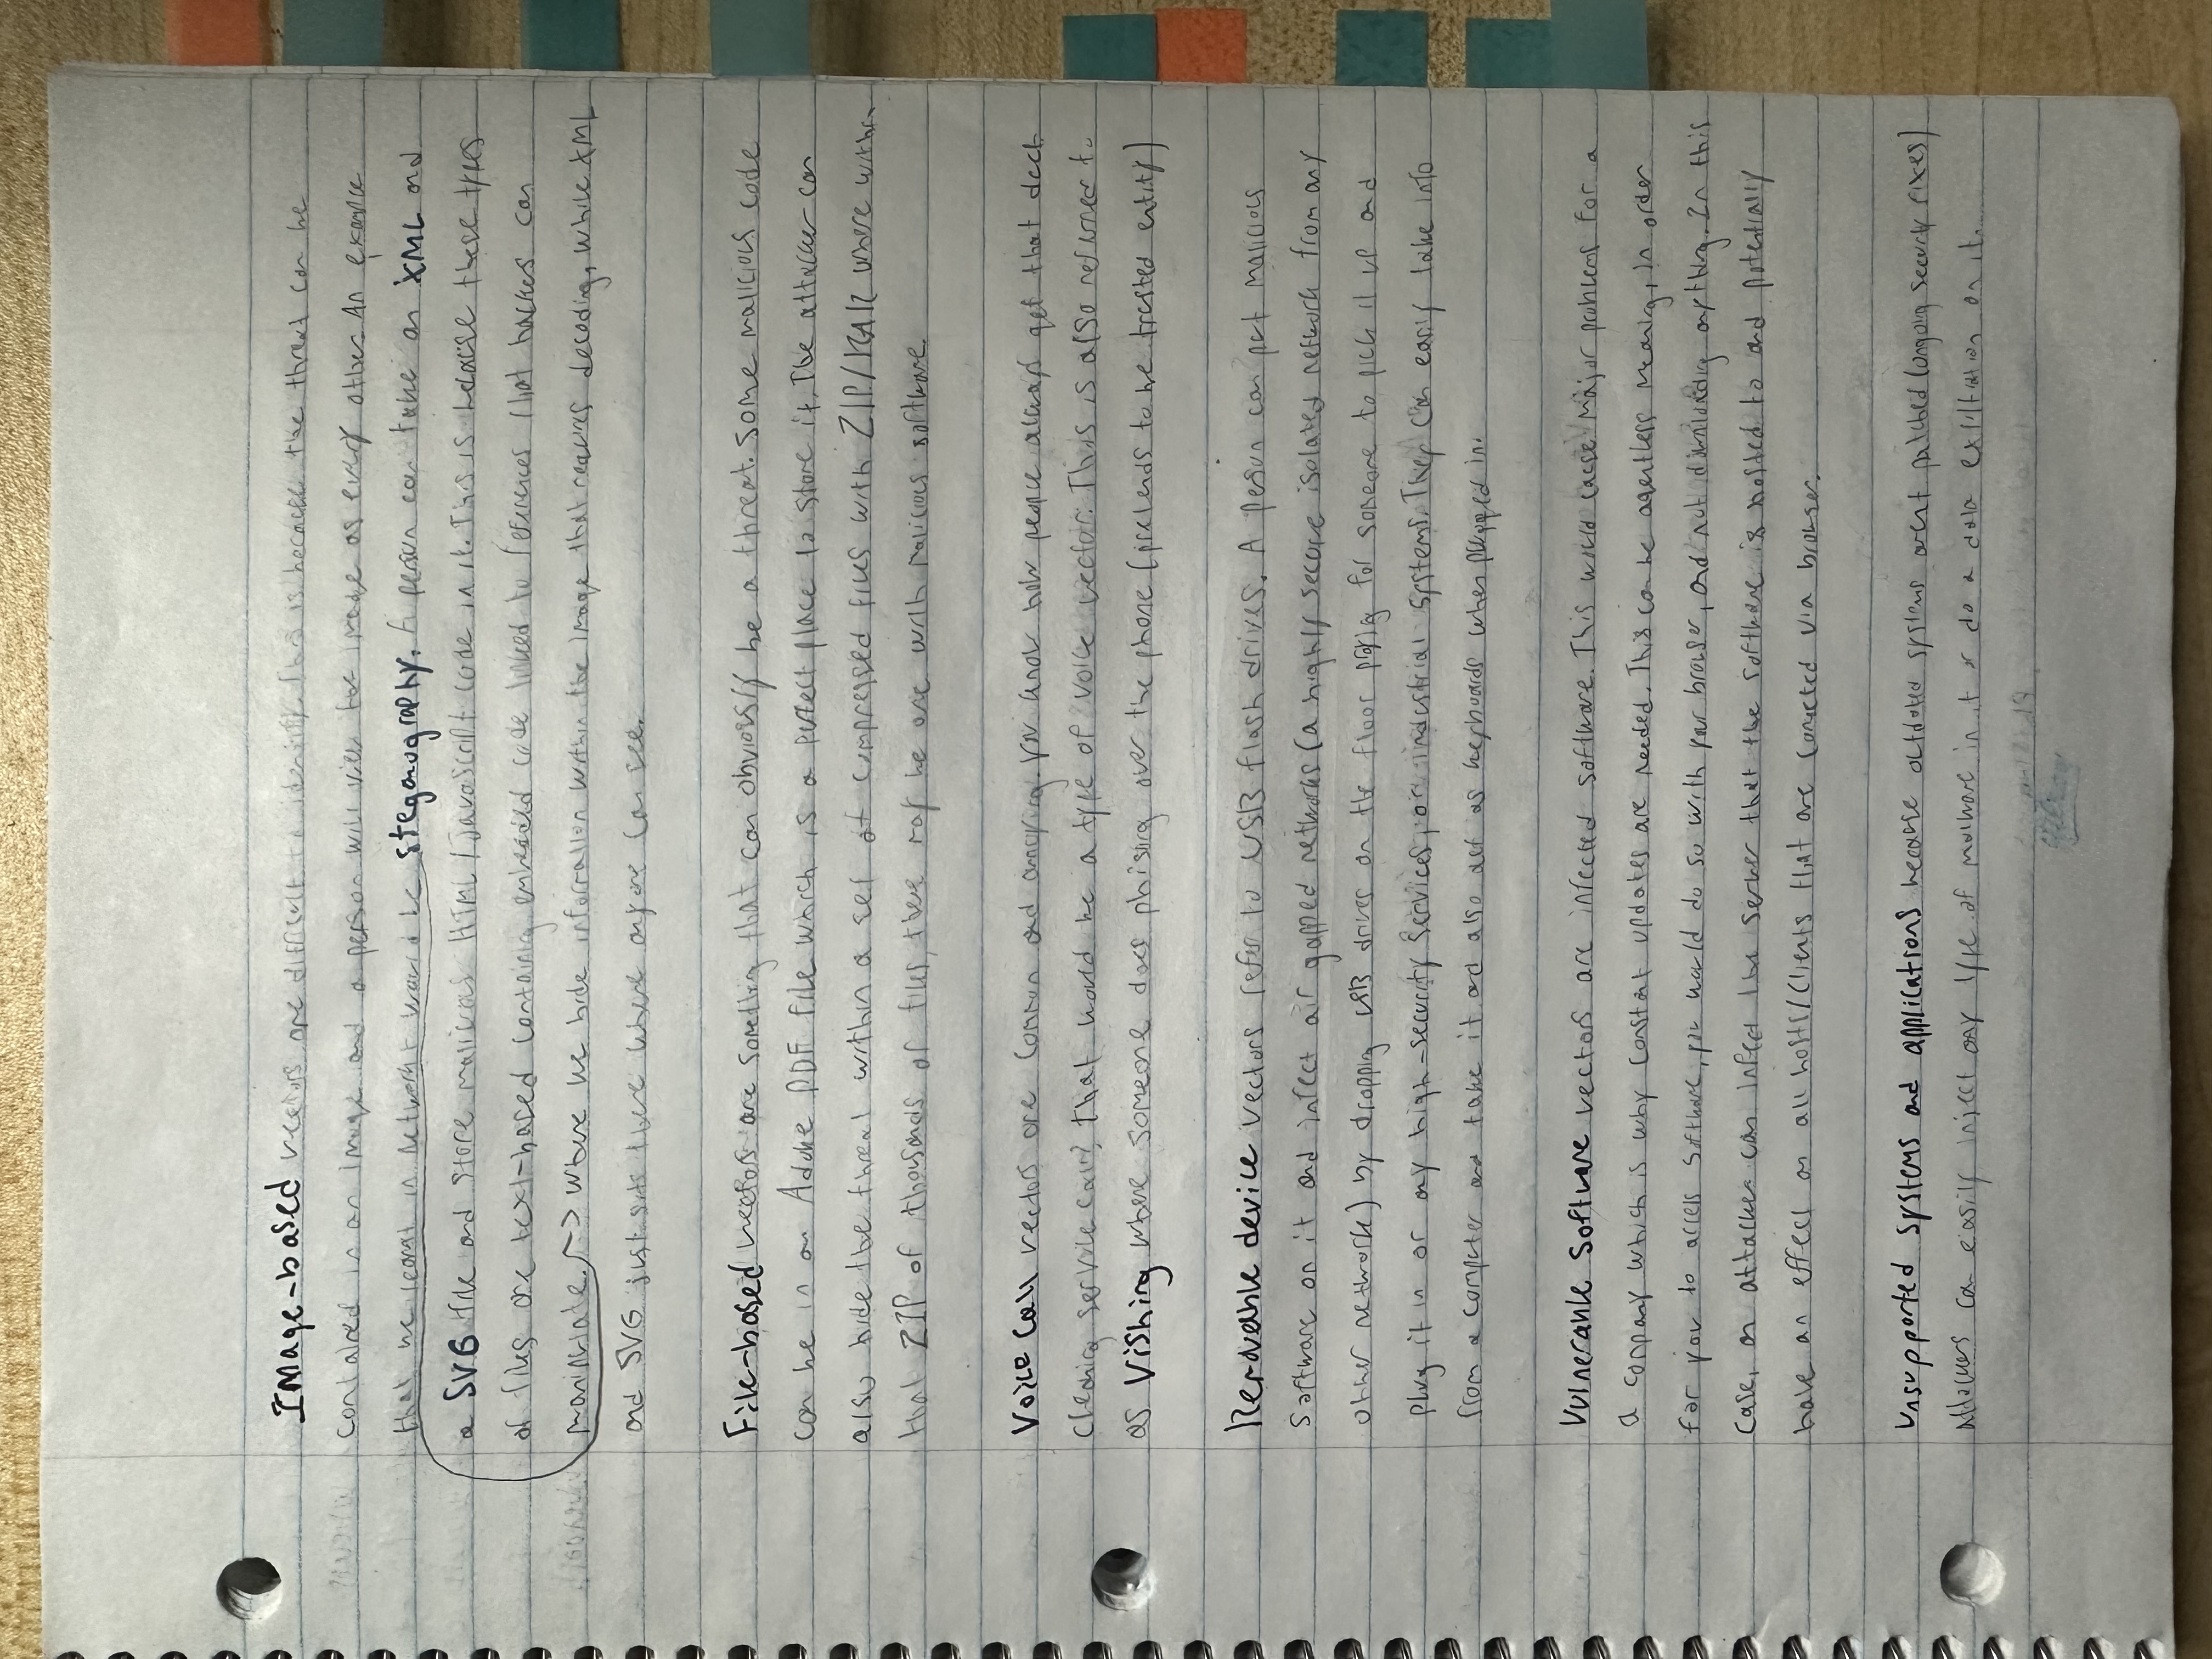 Image-based vectors are difficult to identify. This is because the threat can be
contained in an image and a person will view the image as every other. An example
that we learnt in Network+ would be steganography. A person can take an XML and
a SVG file and store malicious HTML/JavaScript code in it. This is because these types
of files are text-based containing embedded code linked to references that hackers can
manipulate. --> where we hide information within the image that requires decoding, while XML
and SVG just sits there where anyone can see.
File-based vectors are something that can obviously be a threat. Some malicious code
can be in an Adobe PDF file which is a perfect place to store it. The attacker can
also hide the threat within a set of compressed files with ZIP/RAR where within
that ZIP of thousands of files, there may be one with malicious software.
Voice call vectors are common and annoying. You know how people always get that duct
cleaning service call? That would be a type of voice vector. This is also referred to
as Vishing where someone does phising over the phone (pretends to be trusted entity)
Removeable device vectors refer to USB flash drives. A person can put malicious
software on it and infect air gapped networks (a highly secure isolated network from any
other network) by dropping USB drives on the floor praying for someone to pick it up and
plug it in or any high-security services, or industrial systems. They can easily take info
from a computer and take it and also act as keyboards when plugged in.
Vulnerable software vectors are infected software. This would cause major problems for a
a company which is why constant updates are needed. This can be agentless meaning, in order
for you to access software, you would do so with your browser, and not downloading anything. In this
case, an attacker can infect the server that the software is hosted to and potentially
have an effect on all hosts/clients that are connected via browser.
Unsupported systems and applications because outdated systems arent patched (ongoing security fixes)
attackers can easily inject any type of malware in it or do a data exfiltration on it.